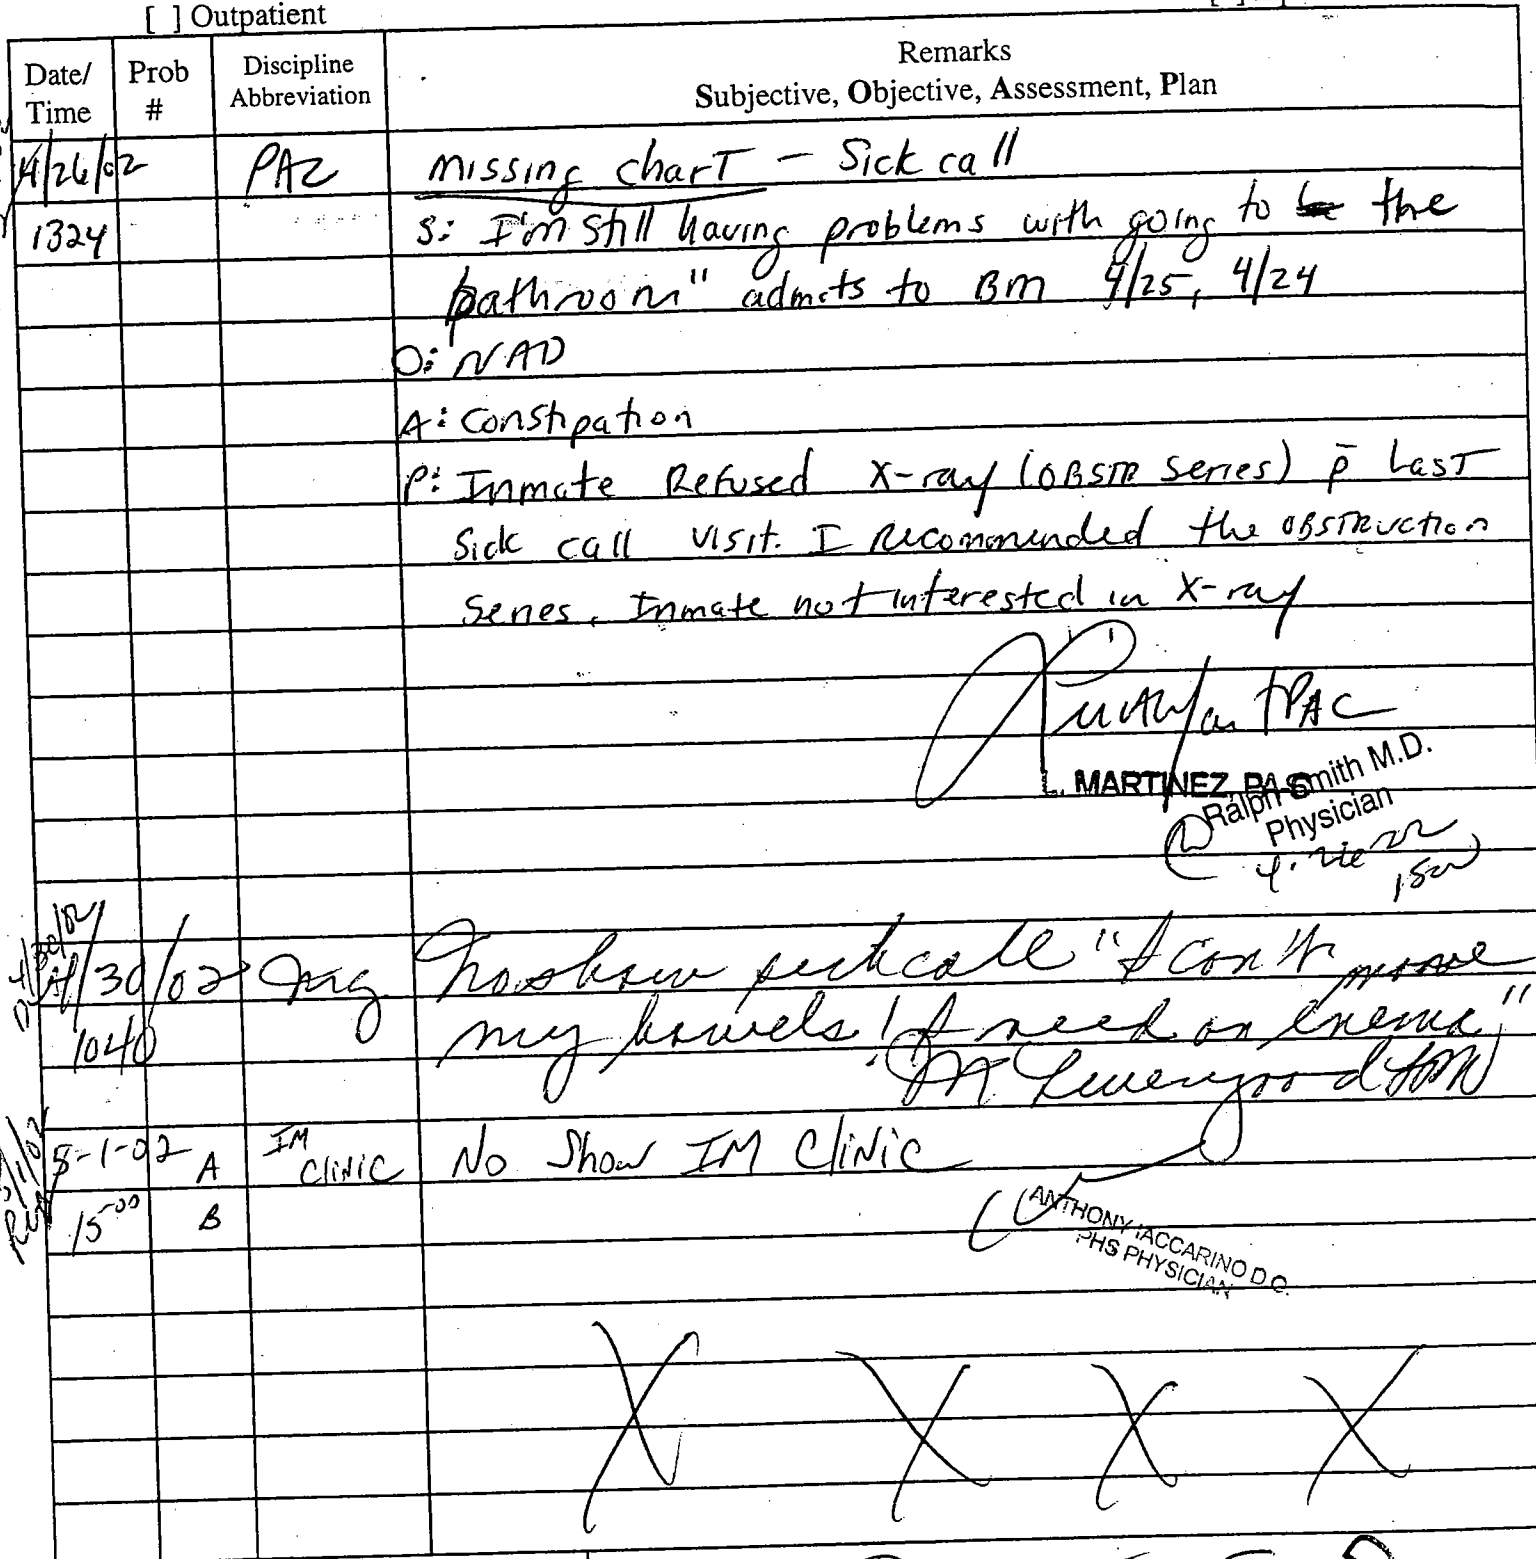 [ ] Outpatient
Date/ Time
Prob #
Discipline Abbreviation
Remarks
Subjective, Objective, Assessment, Plan
4/26/02 PAZ missing charT - Sick call
1324 S: I'm still having problems with going to be the
bathroom" admits to BM 4/25, 4/24
O: NAD
A: Constipation
P: Inmate Refused X-ray (OBSTR series) p̄ LasT
Sick call visit. I recommended the OBSTRuction
Series. Inmate not interested in X-ray
PAC
L. MARTINEZ, PA-C
Ralph Smith M.D.
Physician
4/30/02
4/30/02 No show sickcall "I can't move
1040 my bowels! I need an enema"
5-1-02 A IM Clinic No Show IM Clinic
15-00 B
ANTHONY IACCARINO D.O.
PHS PHYSICIAN